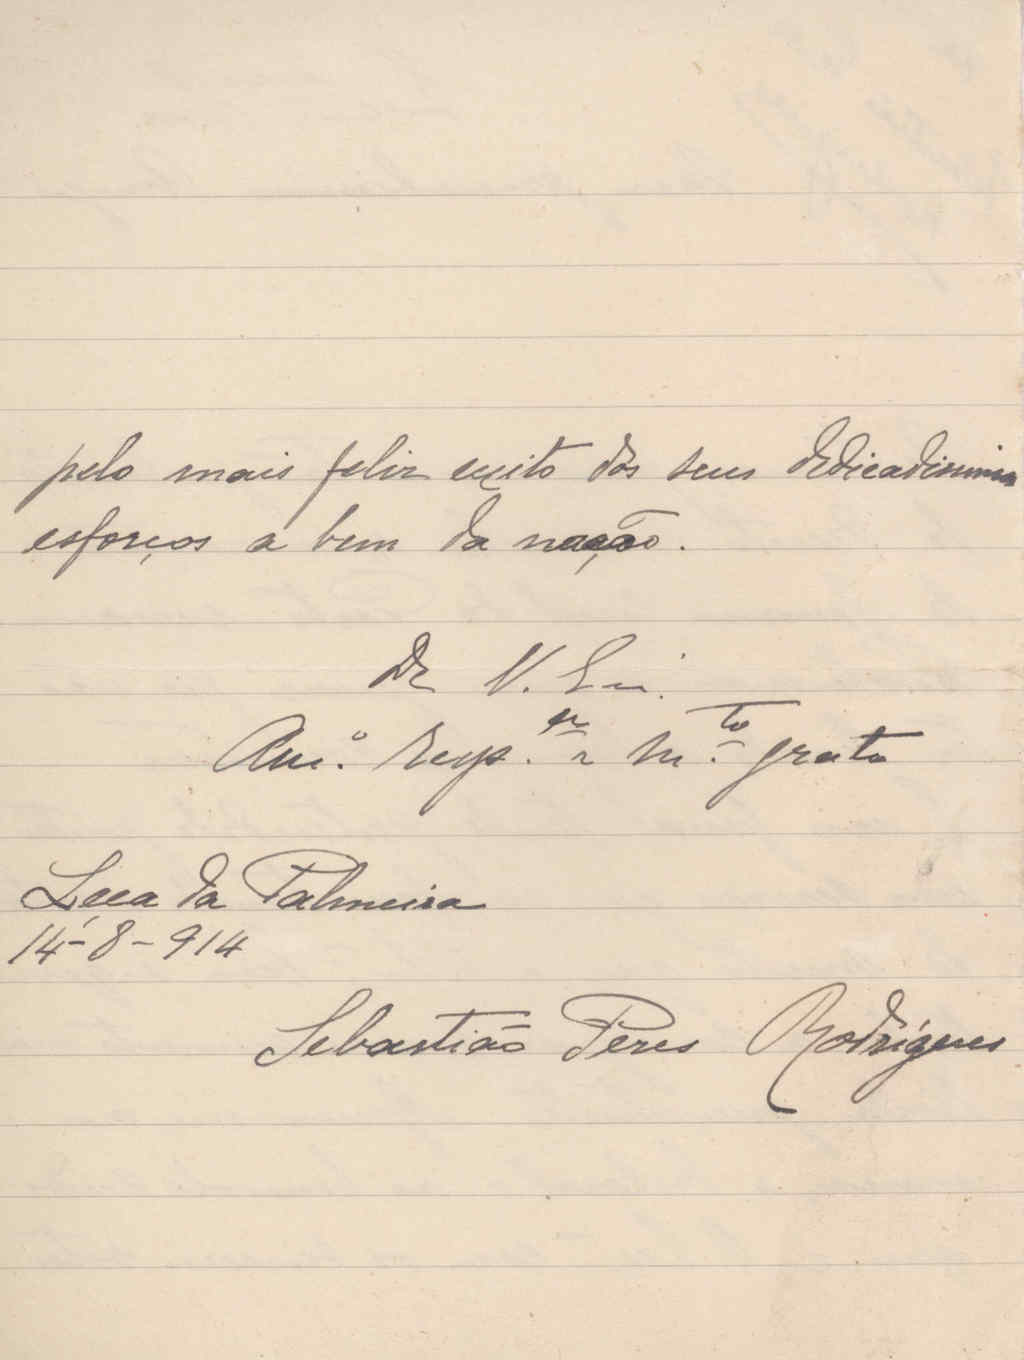 pelo mais feliz exito dos seus dedicadissimos
esforços a bem da nação.
De V. Ex.
Am.º resp.or e m.to grato
Leça da Palmeira
14-8-914
Sebastião Peres Rodrigues